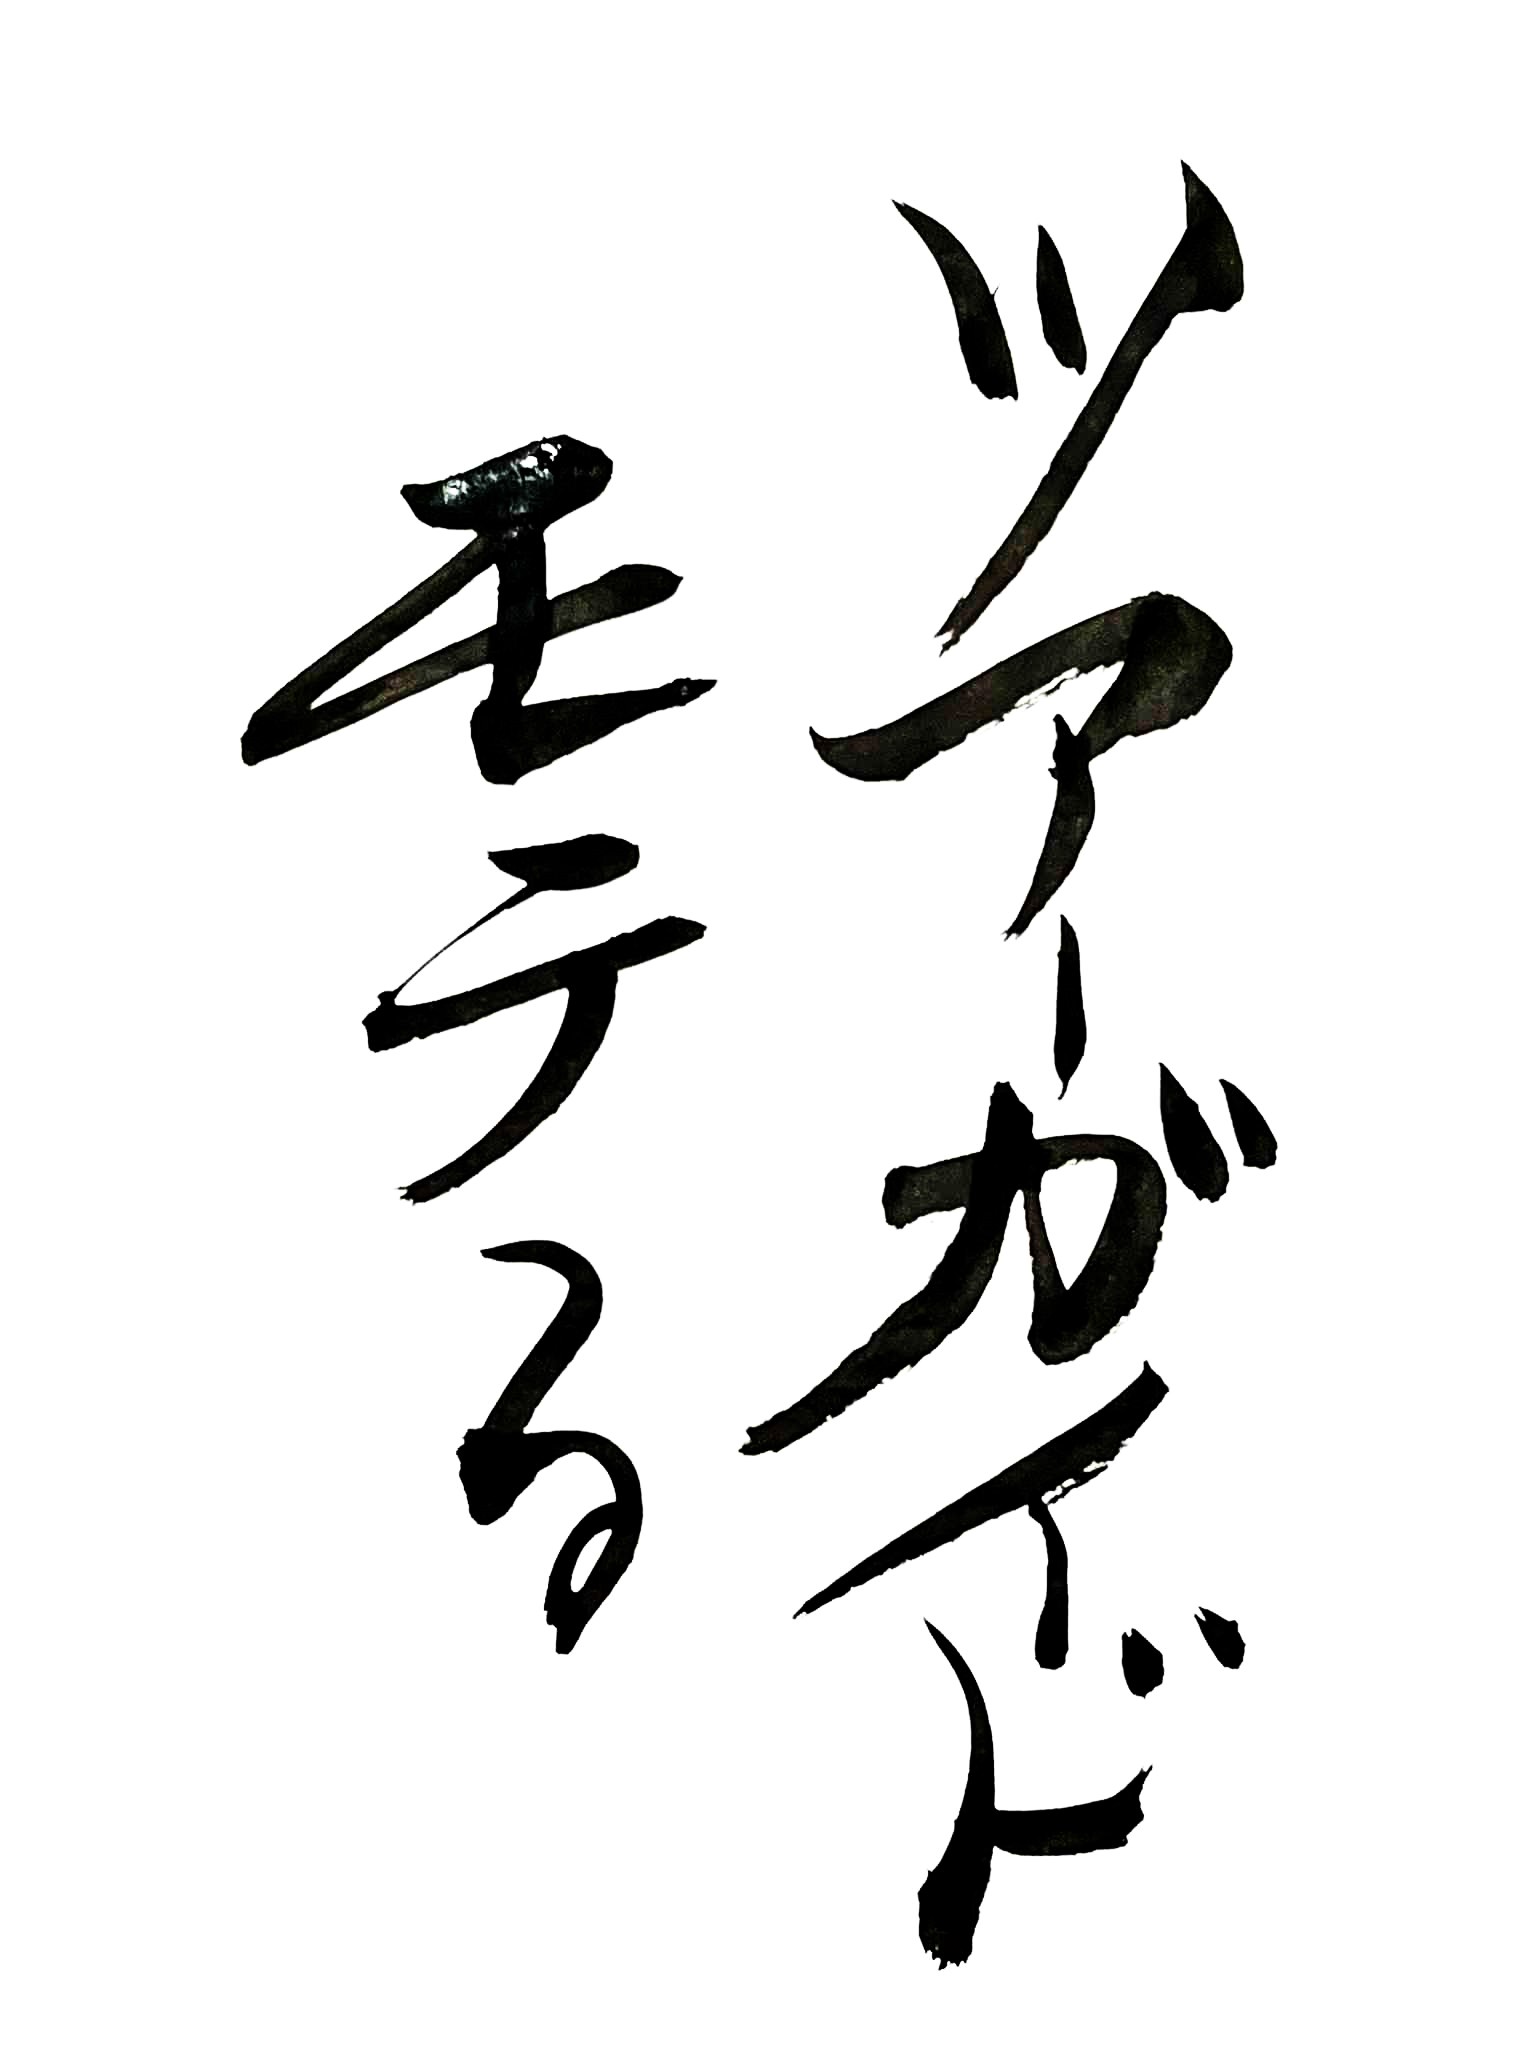 ツアーガイド
モテる